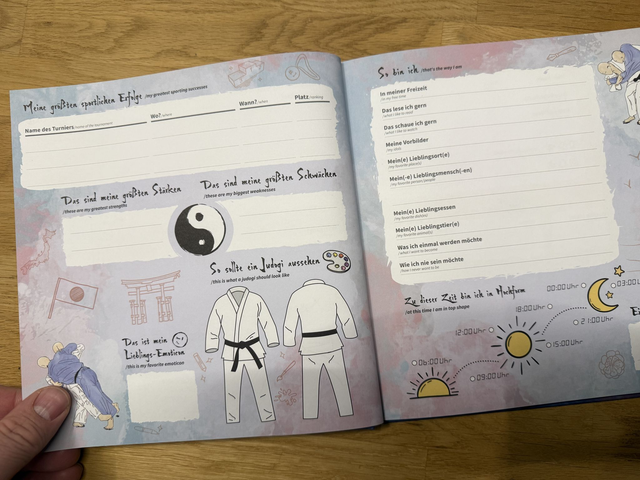 Meine größten sportlichen Erfolge /my greatest sporting successes
Name des Turniers/name of the tournament Wo?/where Wann?/when Platz/ranking
Das sind meine größten Stärken
/these are my greatest strengths
Das sind meine größten Schwächen
/these are my biggest weaknesses
So sollte ein Judogi aussehen
/this is what a judogi should look like
Das ist mein
Lieblings-Emoticon
/this is my favorite emoticon
So bin ich /that's the way I am
In meiner Freizeit
/in my free time
Das lese ich gern
/what I like to read
Das schaue ich gern
/what I like to watch
Meine Vorbilder
/my idols
Mein(e) Lieblingsort(e)
/my favorite place(s)
Mein(-e) Lieblingsmensch(-en)
/my favorite person/people
Mein(e) Lieblingsessen
/my favorite dish(es)
Mein(e) Lieblingstier(e)
/my favorite animal(s)
Was ich einmal werden möchte
/what I want to become
Wie ich nie sein möchte
/how I never want to be
Zu dieser Zeit bin ich in Hochform
/at this time I am in top shape
00:00 Uhr
03:00
18:00 Uhr
21:00 Uhr
12:00 Uhr
15:00 Uhr
06:00 Uhr
09:00 Uhr